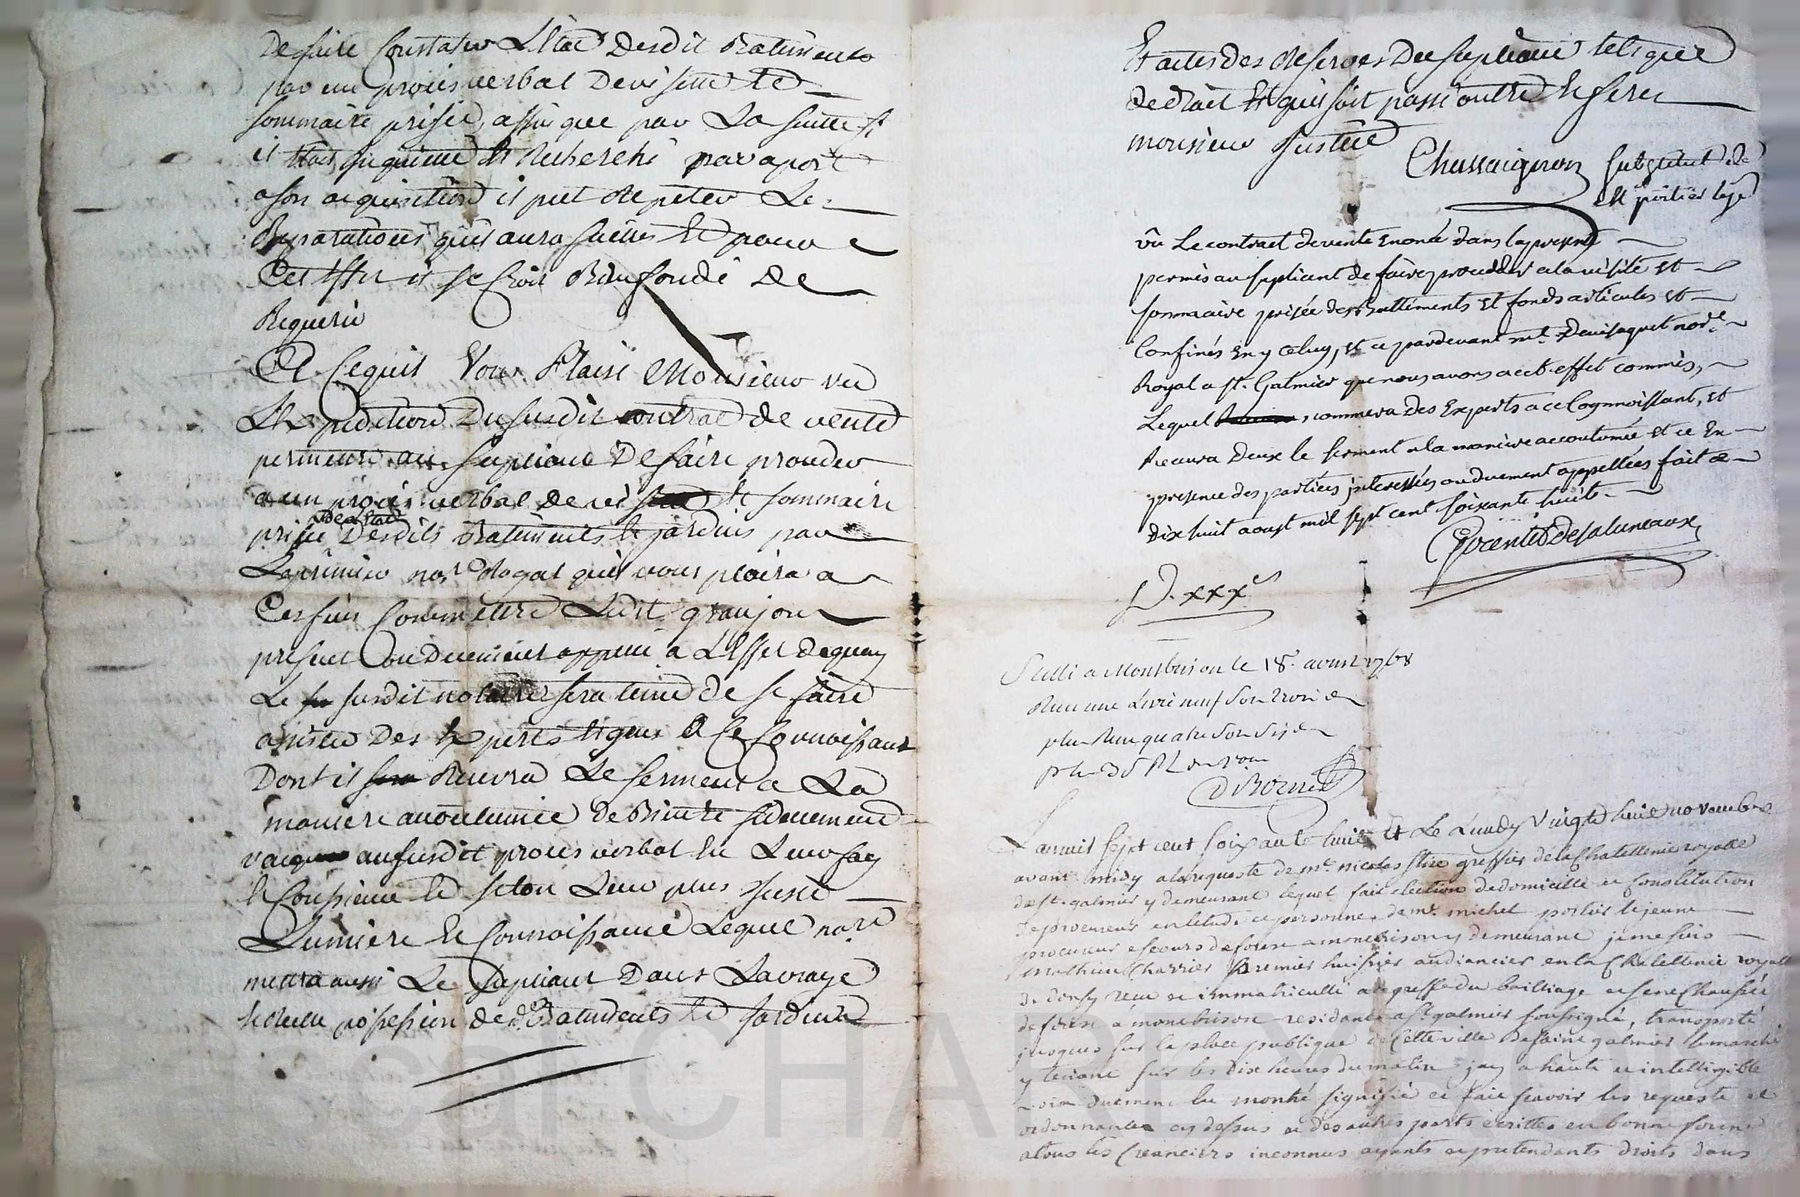 De faire Constater L'Etat Desdit Batiments
par un procès verbal De visitte Et
sommaire prisée, affin que par La suitte si
il Etait inquieté Et Recherché par aport
a son acquisition il put Repeter Les
Reparations qu'il aura faittes Et pour
Cet Effet il se Croit Bien fondé De
Requerir
A Cequil Vous Plaise Monsieur vu
L'Expedition Dususdit contrat de vente
permettre au supliant De faire proceder
a un procès verbal de visitte Et sommaire
prisée De l'Etat Desdits Batiments Et jardins par
Le premier no.re Royal quil vous plaira a
Ces fins Commettre Ledit granjon
present ou Duement appellé a L'Effet Dequoy
Le susdit notaire sera tenu de se faire
assister Des Experts a Ce Connoissant
Dont il Recevra Le serment a La
maniere accoutumée De Bien Et fidellement
vacquer ausdit procès verbal En Leur foy
Et Consience Et selon Leur plus juste
Lumiere Et Connoissance Lequel no.re
mettra aussi Le supliant Dans La vraye
Et reelle possession de Batiments Et Jardins
Et actes des Reserves Du supliant telsque
de droit Et quil soit passé outre En ferez
monsieur Justice
Chassaignon substitut de
M.e portier lejé
vû Le contract de vente Enoncé dans la presente
permis au supliant de faire proceder a la visite Et
sommaire prisée des Battiments Et fonds articulés Et
Confinés En y celuy, Et ce pardevant m.e Denis jaquet no.re
Royal a St. Galmier que nous avons acet effet commis,
Lequel nommera des Experts a ce Cognoissant, Et
Recevra D'eux le serment a la maniere accoutumée Et ce En
presence des parties interessées ou duement appellées fait ce
dix huit aoust mil sept cent soixante huit.
D. xxx s
Scellé a Montbrison le 18. aoust 1768
Reçu une Livre neuf sou trois d
plus Reçu quatre sou six d
L'an mil sept cent soixante huit Et Le Lundy Vingt huit novembre
avant midy a la requeste de m.e nicolas greffier de la Chatellenie royalle
de st. galmier y demeurant lequel fait election de domicille et Constitution
de procureur en letude et personne de m.e michel portier lejeune
procureur es cours de forest a montbrison y demeurant je me suis
mathieu Charrier premier huissier audiancier en la Chatellenie royalle
de Donzy reçu et immatriculé au greffe du bailliage et senechaussée
de forest a montbrison residant a St. galmier soussigné, transporté
jusques sur la place publique de Cette ville de saint galmier le marché
y tenant sur les dix heures du matin jay a haute et intelligible
voix duement lu montré signifié et fait scavoir les requeste et
ordonnance cy dessus et des autres parts ecrittes en bonne forme
a tous les Creanciers inconnus ayants et pretendants droits dans
CHAR